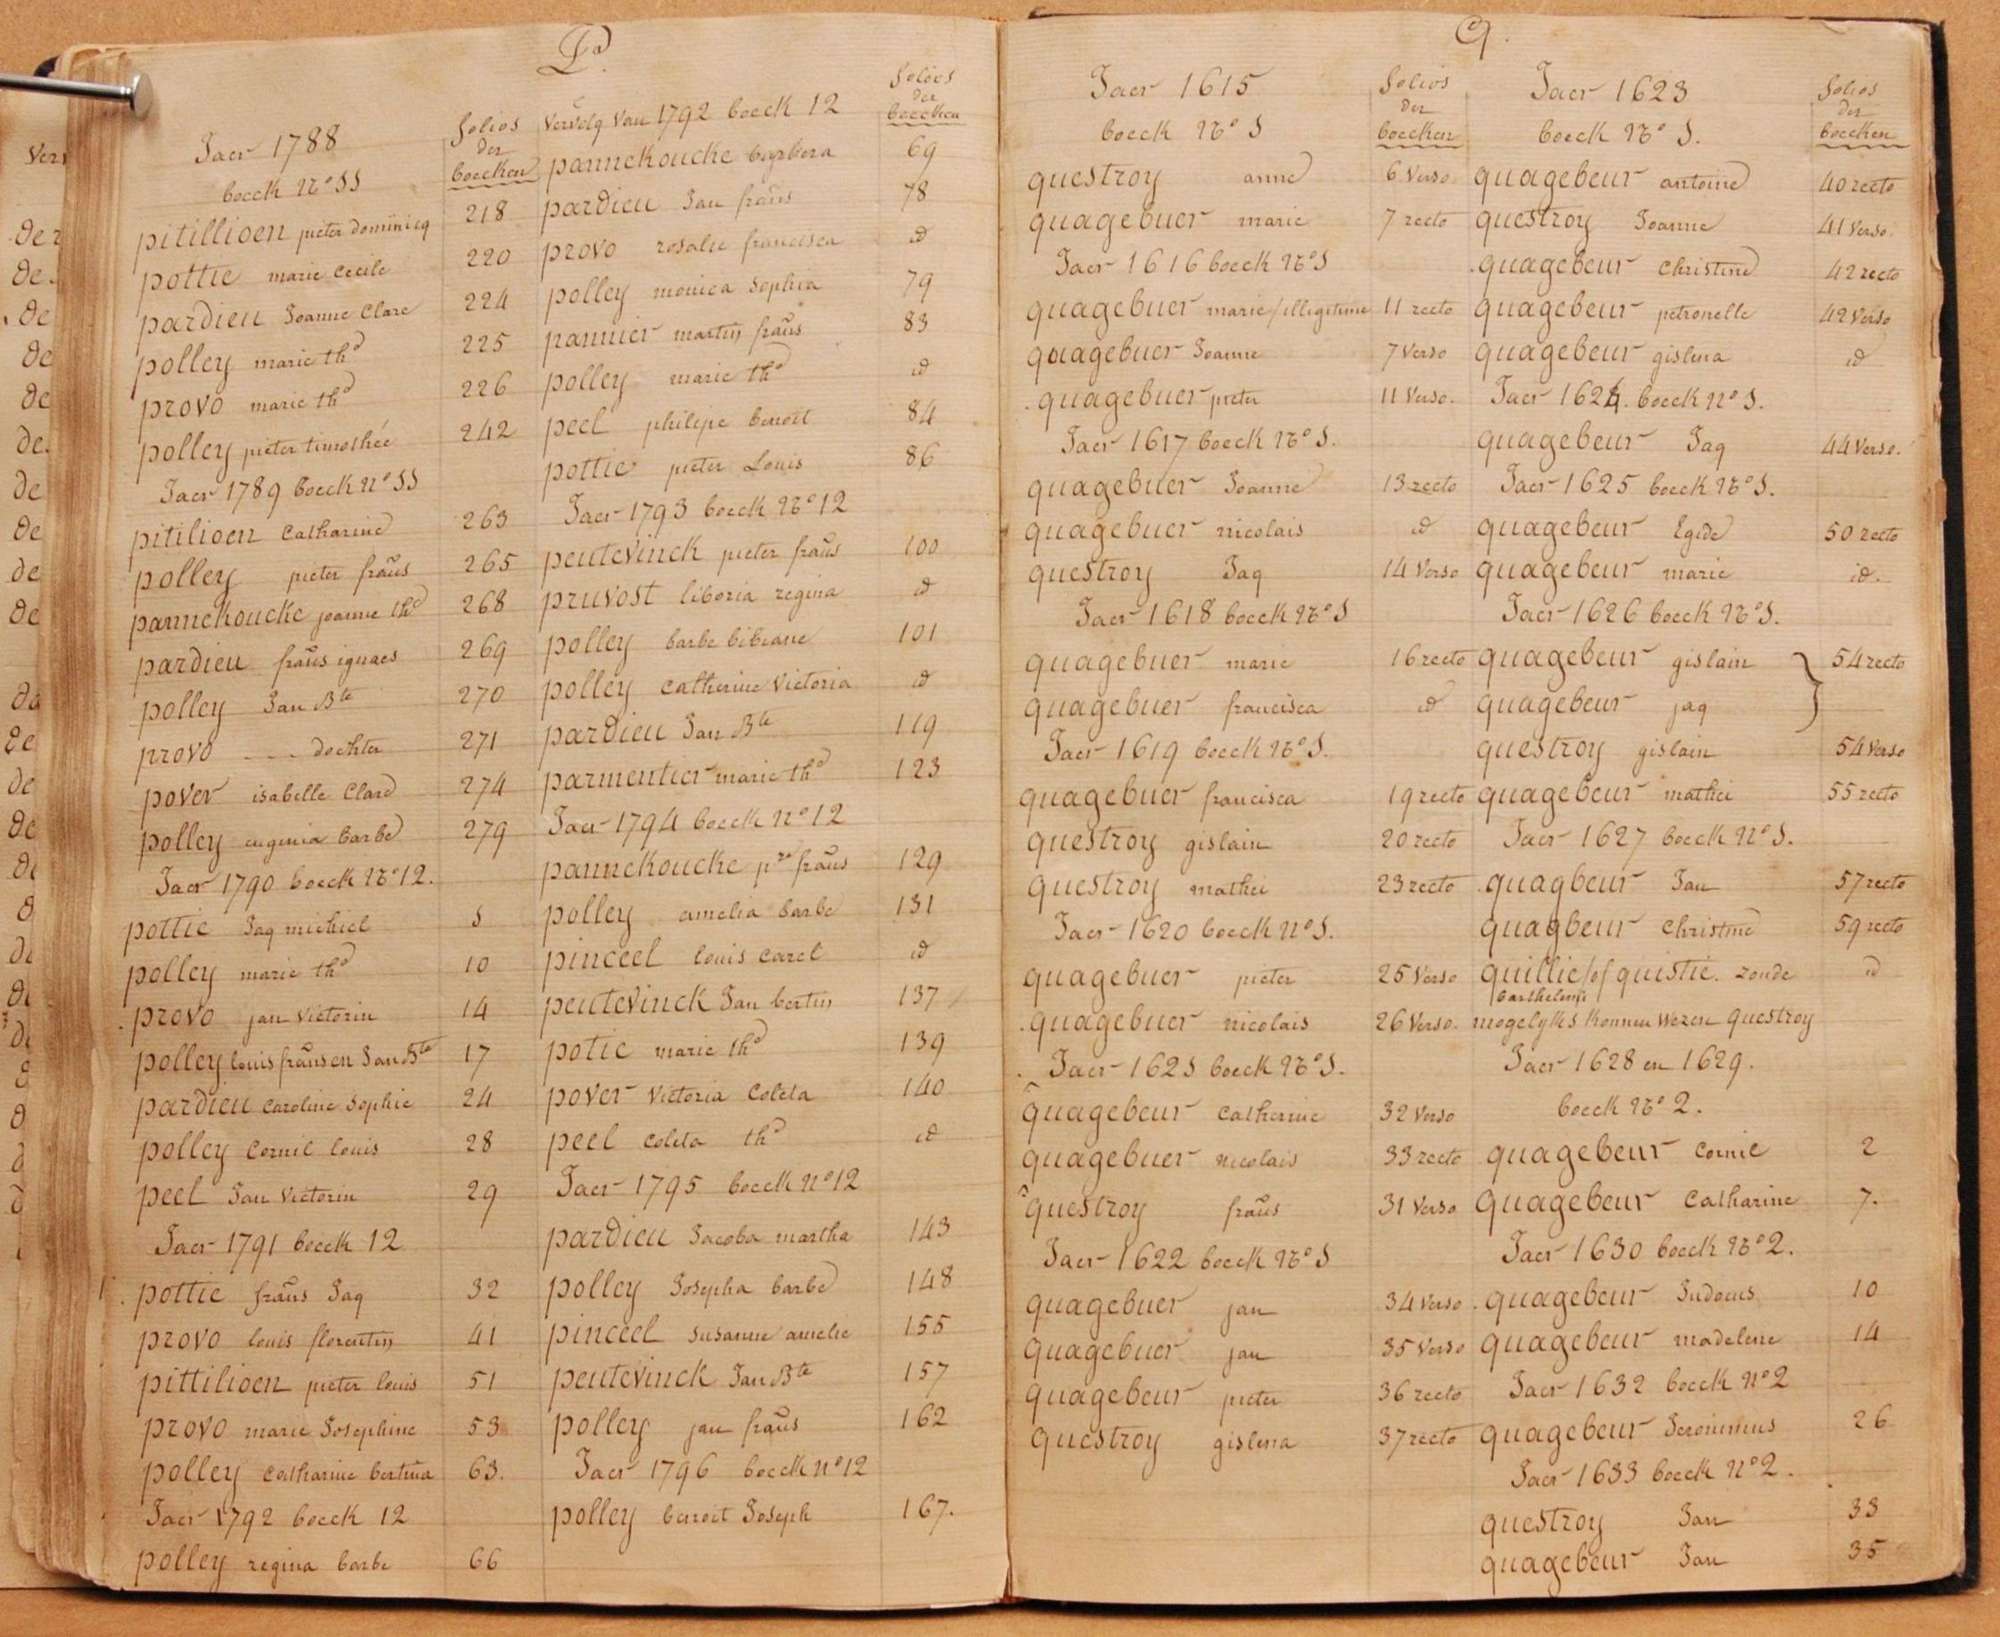 P.
Jaer 1788
boeck No SS
folios
der
boecken
pitillioen pieter dominicq 218
pottie marie Cecile 220
pardieu Joanne Clare 224
polley marie thd 225
provo marie thd 226
polley pieter timothée 242
Jaer 1789 boeck no SS
pitilioen Catharine 263
polley pieter frans 265
pannekoucke joanne thd 268
pardieu frans ignaes 269
polley Jan Bte 270
provo --- dochter 271
pover isabelle Clare 274
polley eugenia barbe 279
Jaer 1790 boeck No 12.
pottie Jaq michiel 5
polley marie thd 10
provo jan Victorin 14
polley louis frans en Jan Bte 17
pardieu Caroline Sophie 24
polley Cornil louis 28
peel Jan Victorin 29
Jaer 1791 boeck 12
pottie frans Jaq 32
provo louis florentin 41
pittilioen pieter louis 51
provo marie Josephine 53
polley Catharine bertina 63.
Jaer 1792 boeck 12
polley regina barbe 66
Vervolg van 1792 boeck 12
folios
der
boecken
pannekoucke barbera 69
pardieu Jan frans 78
provo rosalie francisca id
polley monica Sophia 79
pannier martin frans 83
polley marie thd id
peel philipe benoit 84
pottie pieter Louis 86
Jaer 1793 boeck No 12
peutevinck pieter frans 100
pruvost liboria regina id
polley barbe bibiane 101
polley Catherine Victoria id
pardieu Jan Bte 119
parmentier marie thd 123
Jaer 1794 boeck No 12
pannekoucke pre frans 129
polley amelia barbe 131
pinceel louis Carel id
peutevinck Jan bertin 137
potie marie thd 139
pover Victoria Coleta 140
peel Coleta thd id
Jaer 1795 boeck No 12
pardieu Jacoba martha 143
polley Josepha barbe 148
pinceel Susanne amelie 155
peutevinck Jan Bte 157
polley jan frans 162
Jaer 1796 boeck No 12
polley benoit Joseph 167.
Q.
Jaer 1615
boeck No S
folios
der
boecken
questroy anne 6 Verso
quagebuer marie 7 recto
Jaer 1616 boeck No S
quagebuer marie/illegitime 11 recto
quagebuer Joanne 7 Verso
quagebuer pieter 11 Verso.
Jaer 1617 boeck No S.
quagebuer Joanne 13 recto
quagebuer nicolais id
questroy Jaq 14 Verso
Jaer 1618 boeck No S
quagebuer marie 16 recto
quagebuer francisca id
Jaer 1619 boeck No S.
quagebuer francisca 19 recto
questroy gislain 20 recto
questroy mathei 23 recto
Jaer 1620 boeck No S.
quagebuer pieter 25 Verso
quagebuer nicolais 26 Verso.
Jaer 1621 boeck No S.
quagebeur Catherine 32 Verso
quagebuer nicolais 33 recto
questroy frans 31 Verso
Jaer 1622 boeck No S
quagebuer jan 34 Verso
quagebuer jan 35 Verso
quagebeur pieter 36 recto
questroy gislena 37 recto
Jaer 1623
boeck No S.
folios
der
boecken
quagebeur antoine 40 recto
questroy Joanne 41 Verso.
quagebeur Christine 42 recto
quagebeur petronelle 42 Verso
quagebeur gislena id
Jaer 1624. boeck No S.
quagebeur Jaq 44 Verso.
Jaer 1625 boeck No S.
quagebeur Egide 50 recto
quagebeur marie id.
Jaer 1626 boeck No S.
quagebeur gislain } 54 recto
quagebeur jaq
questroy gislain 54 Verso
quagebeur mathei 55 recto
Jaer 1627 boeck No S.
quagbeur Jan 57 recto
quagbeur Christine 59 recto
quillie/of quistie. zonde id
barthelemi
mogelyks konnen Wezen questroy
Jaer 1628 en 1629.
boeck No 2.
quagebeur Cornie 2
quagebeur Catharine 7.
Jaer 1630 boeck No 2.
quagebeur Judocus 10
quagebeur madelene 14
Jaer 1632 boeck No 2
quagebeur Jeronimus 26
Jaer 1633 boeck No 2.
questroy Jan 33
quagebeur Jan 35